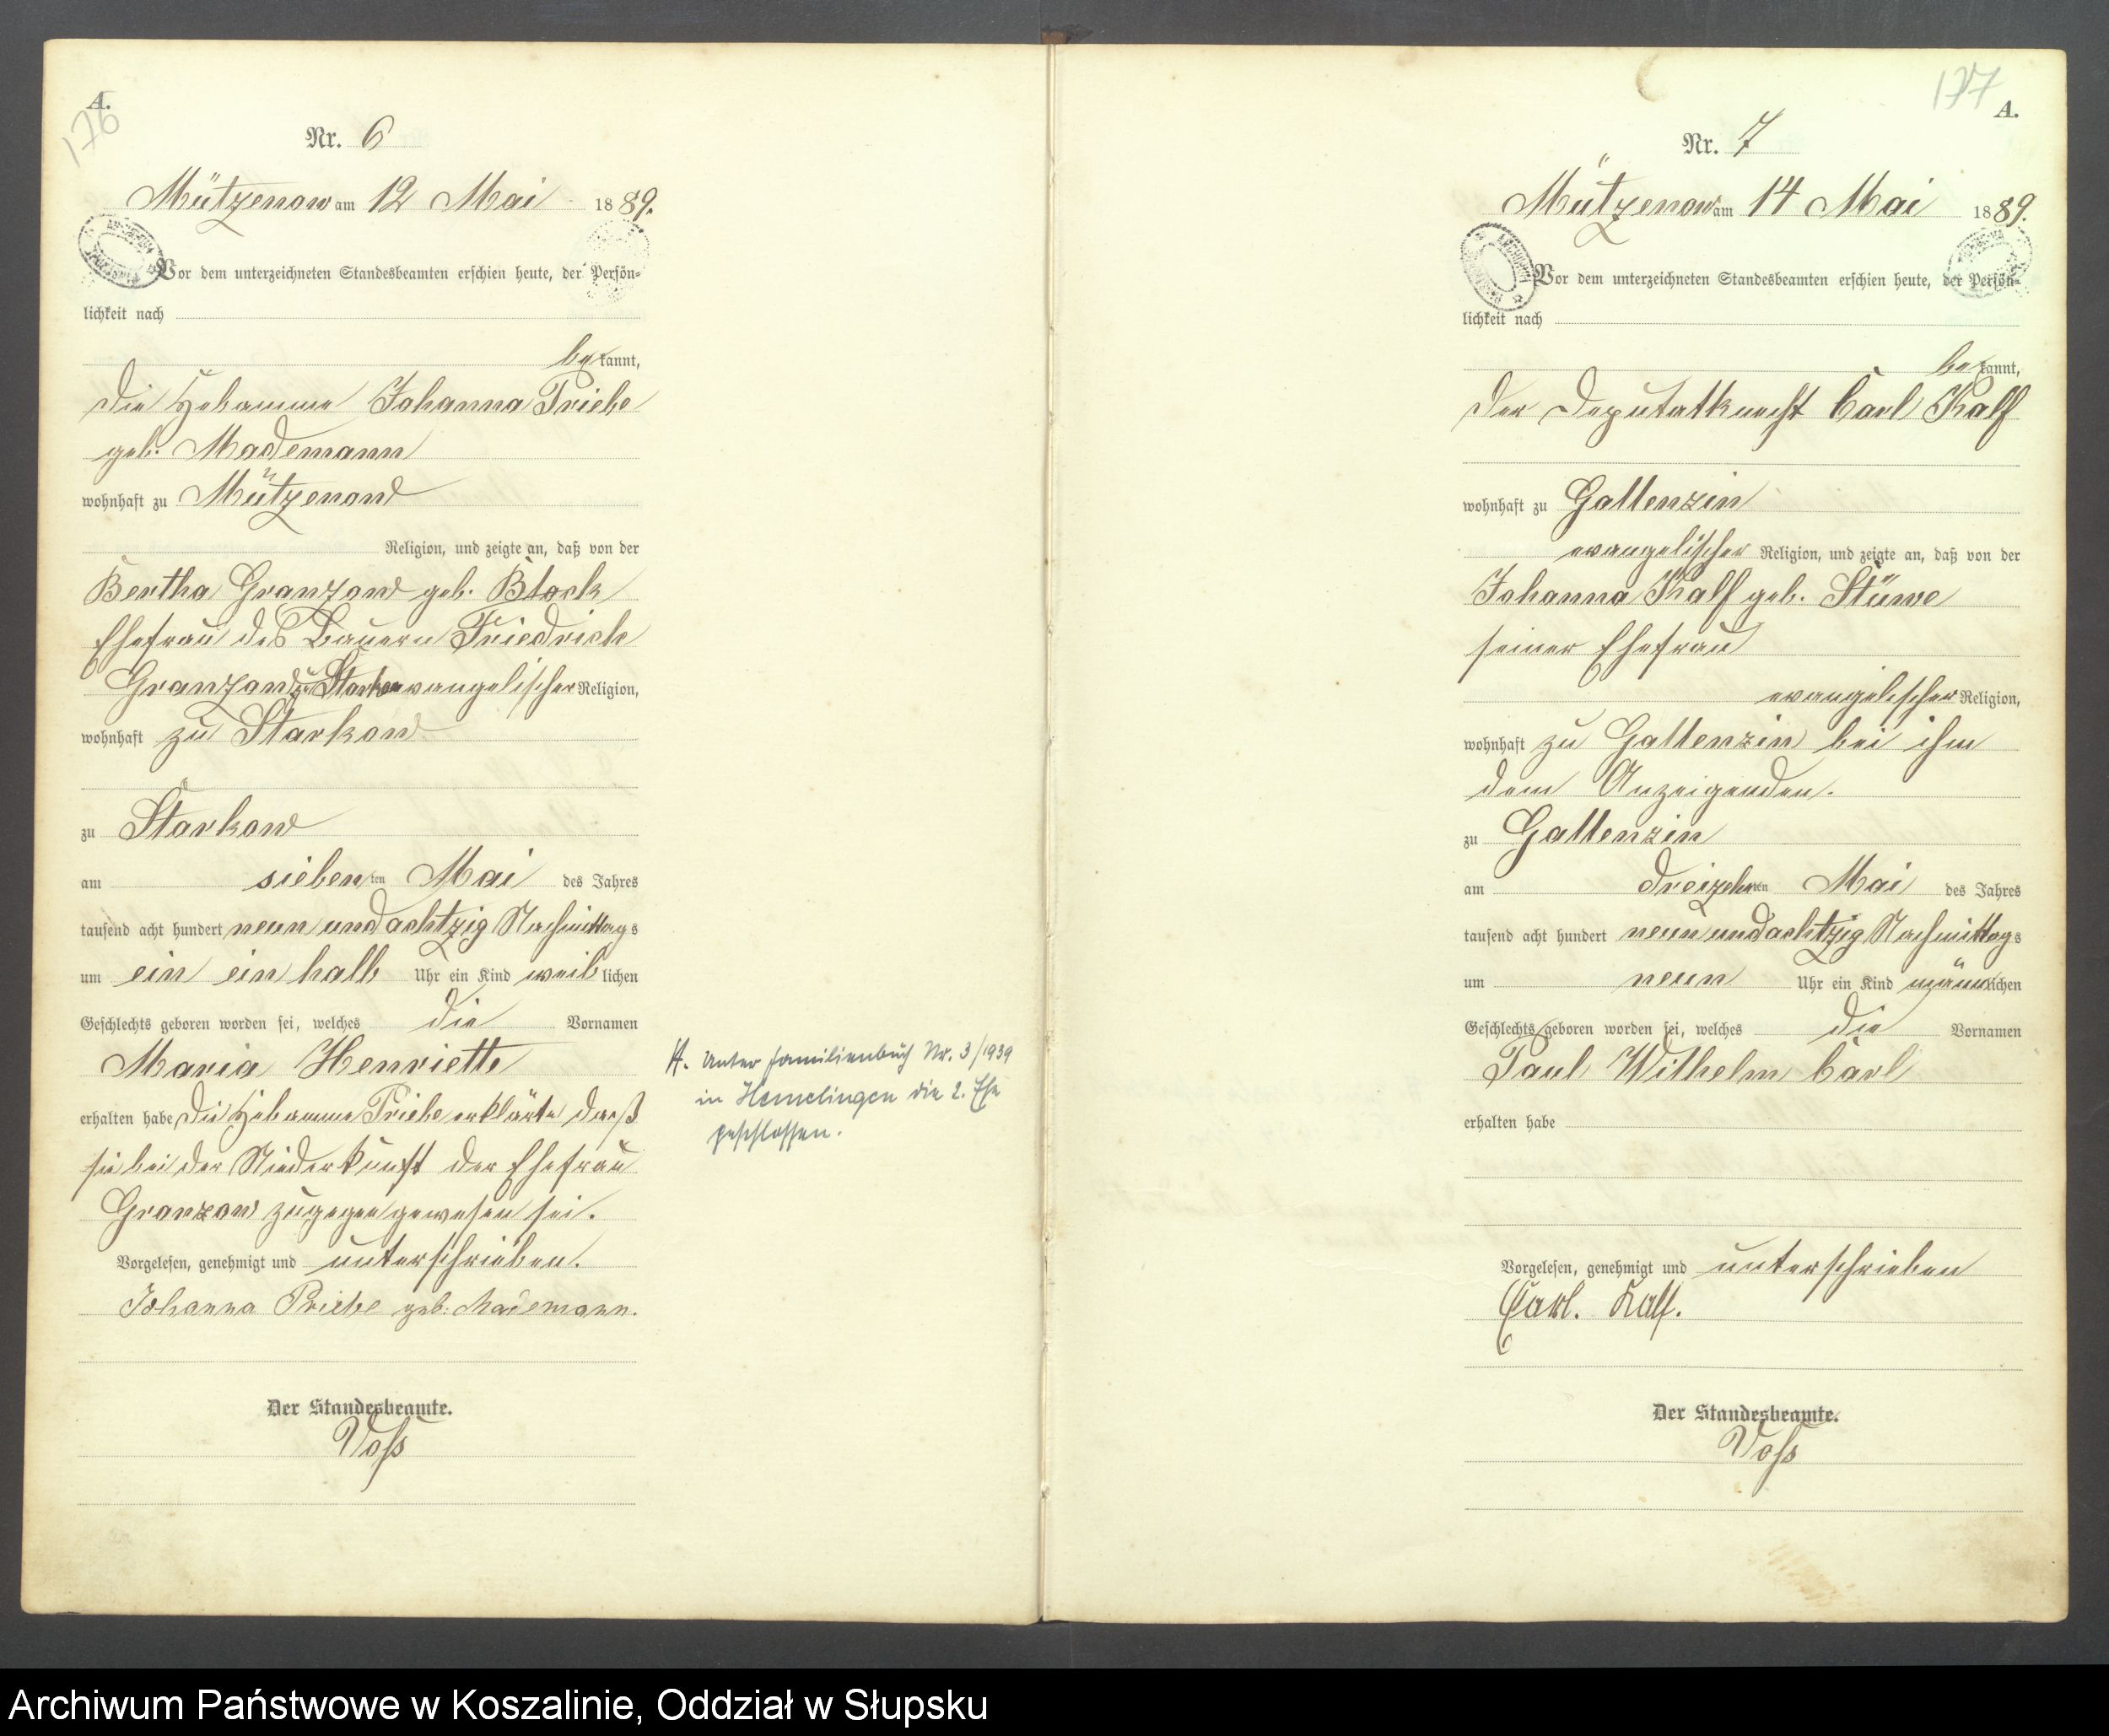 A.
176
Nr. 6
Mützenow am 12 Mai 1889.
Vor dem unterzeichneten Standesbeamten erschien heute, der Persön-
lichkeit nach
bekannt,
die Hebamme Johanna Priebe
geb. Mademann
wohnhaft zu Mützenow
Religion, und zeigte an, daß von der
Bertha Granzow geb. Block
Ehefrau des Bauern Friedrich
Granzow zu Starkow evangelischer Religion,
wohnhaft zu Starkow
zu Starkow
am siebenten Mai des Jahres
tausend acht hundert neun und achtzig Nachmittags
um ein ein halb Uhr ein Kind weiblichen
Geschlechts geboren worden sei, welches die Vornamen
Maria Henriette
erhalten habe Die Hebamme Priebe erklärte daß
sie bei der Niederkunft der Ehefrau
Granzow zugegen gewesen sei.
Vorgelesen, genehmigt und unterschrieben.
Johanna Priebe geb. Mademann.
Der Standesbeamte.
Voß
H. Unter Familienbuch Nr. 3/1939
in Hemelingen die 2. Ehe
geschlossen.
177
A.
Nr. 7
Mützenow am 14 Mai 1889.
Vor dem unterzeichneten Standesbeamten erschien heute, der Persön-
lichkeit nach
bekannt,
der Deputatknecht Carl Kalf
wohnhaft zu Gallenzin
evangelischer Religion, und zeigte an, daß von der
Johanna Kalf geb. Stüwe
seiner Ehefrau
evangelischer Religion,
wohnhaft zu Gallenzin bei ihm
dem Anzeigenden.
zu Gallenzin
am dreizehnten Mai des Jahres
tausend acht hundert neun und achtzig Nachmittags
um neun Uhr ein Kind männlichen
Geschlechts geboren worden sei, welches die Vornamen
Paul Wilhelm Carl
erhalten habe
Vorgelesen, genehmigt und unterschrieben
Carl. Kalf.
Der Standesbeamte.
Voß
Archiwum Państwowe w Koszalinie, Oddział w Słupsku